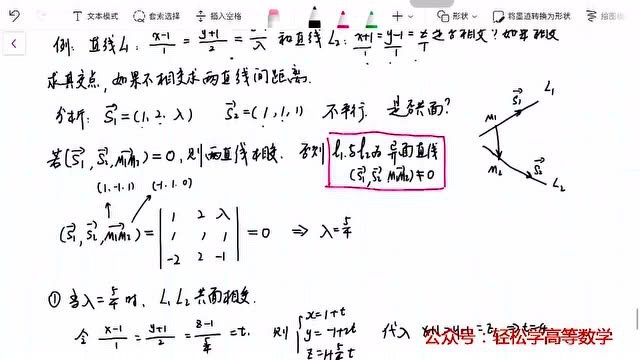 文本绘制 套索选择 插入空格 形状 将墨迹转换为形状 绘图
例: 直线L₁: (x-1)/1 = (y+1)/2 = /λ 和直线L₂: (x+1)/1 = (y-1)/1 = z/1 是否相交? 如果相交
求其交点, 如果不相交求两直线间距离.
分析: S₁=(1, 2, λ) S₂=(1, 1, 1) 不平行. 是否共面?
若(S₁, S₂, M₁M₂)=0, 则两直线相交. 否则 L₁与L₂为异面直线
(S₁, S₂, M₁M₂)≠0
(1, -1, 1) (-1, 1, 0)
(S₁, S₂, M₁M₂) = | 1 2 λ | = 0 ⇒ λ=5/4
| 1 1 1 |
| -2 2 -1 |
M₁ S₁ L₁
M₂ S₂ L₂
① 当λ=5/4时, L₁L₂共面相交.
令 (x-1)/1 = (y+1)/2 = (z-1)/(5/4) = t. 则 { x=1+t
y=-1+2t
z=1+5/4 t
代入 x+1=y-1=z ⇒ t=4
公众号：轻松学高等数学